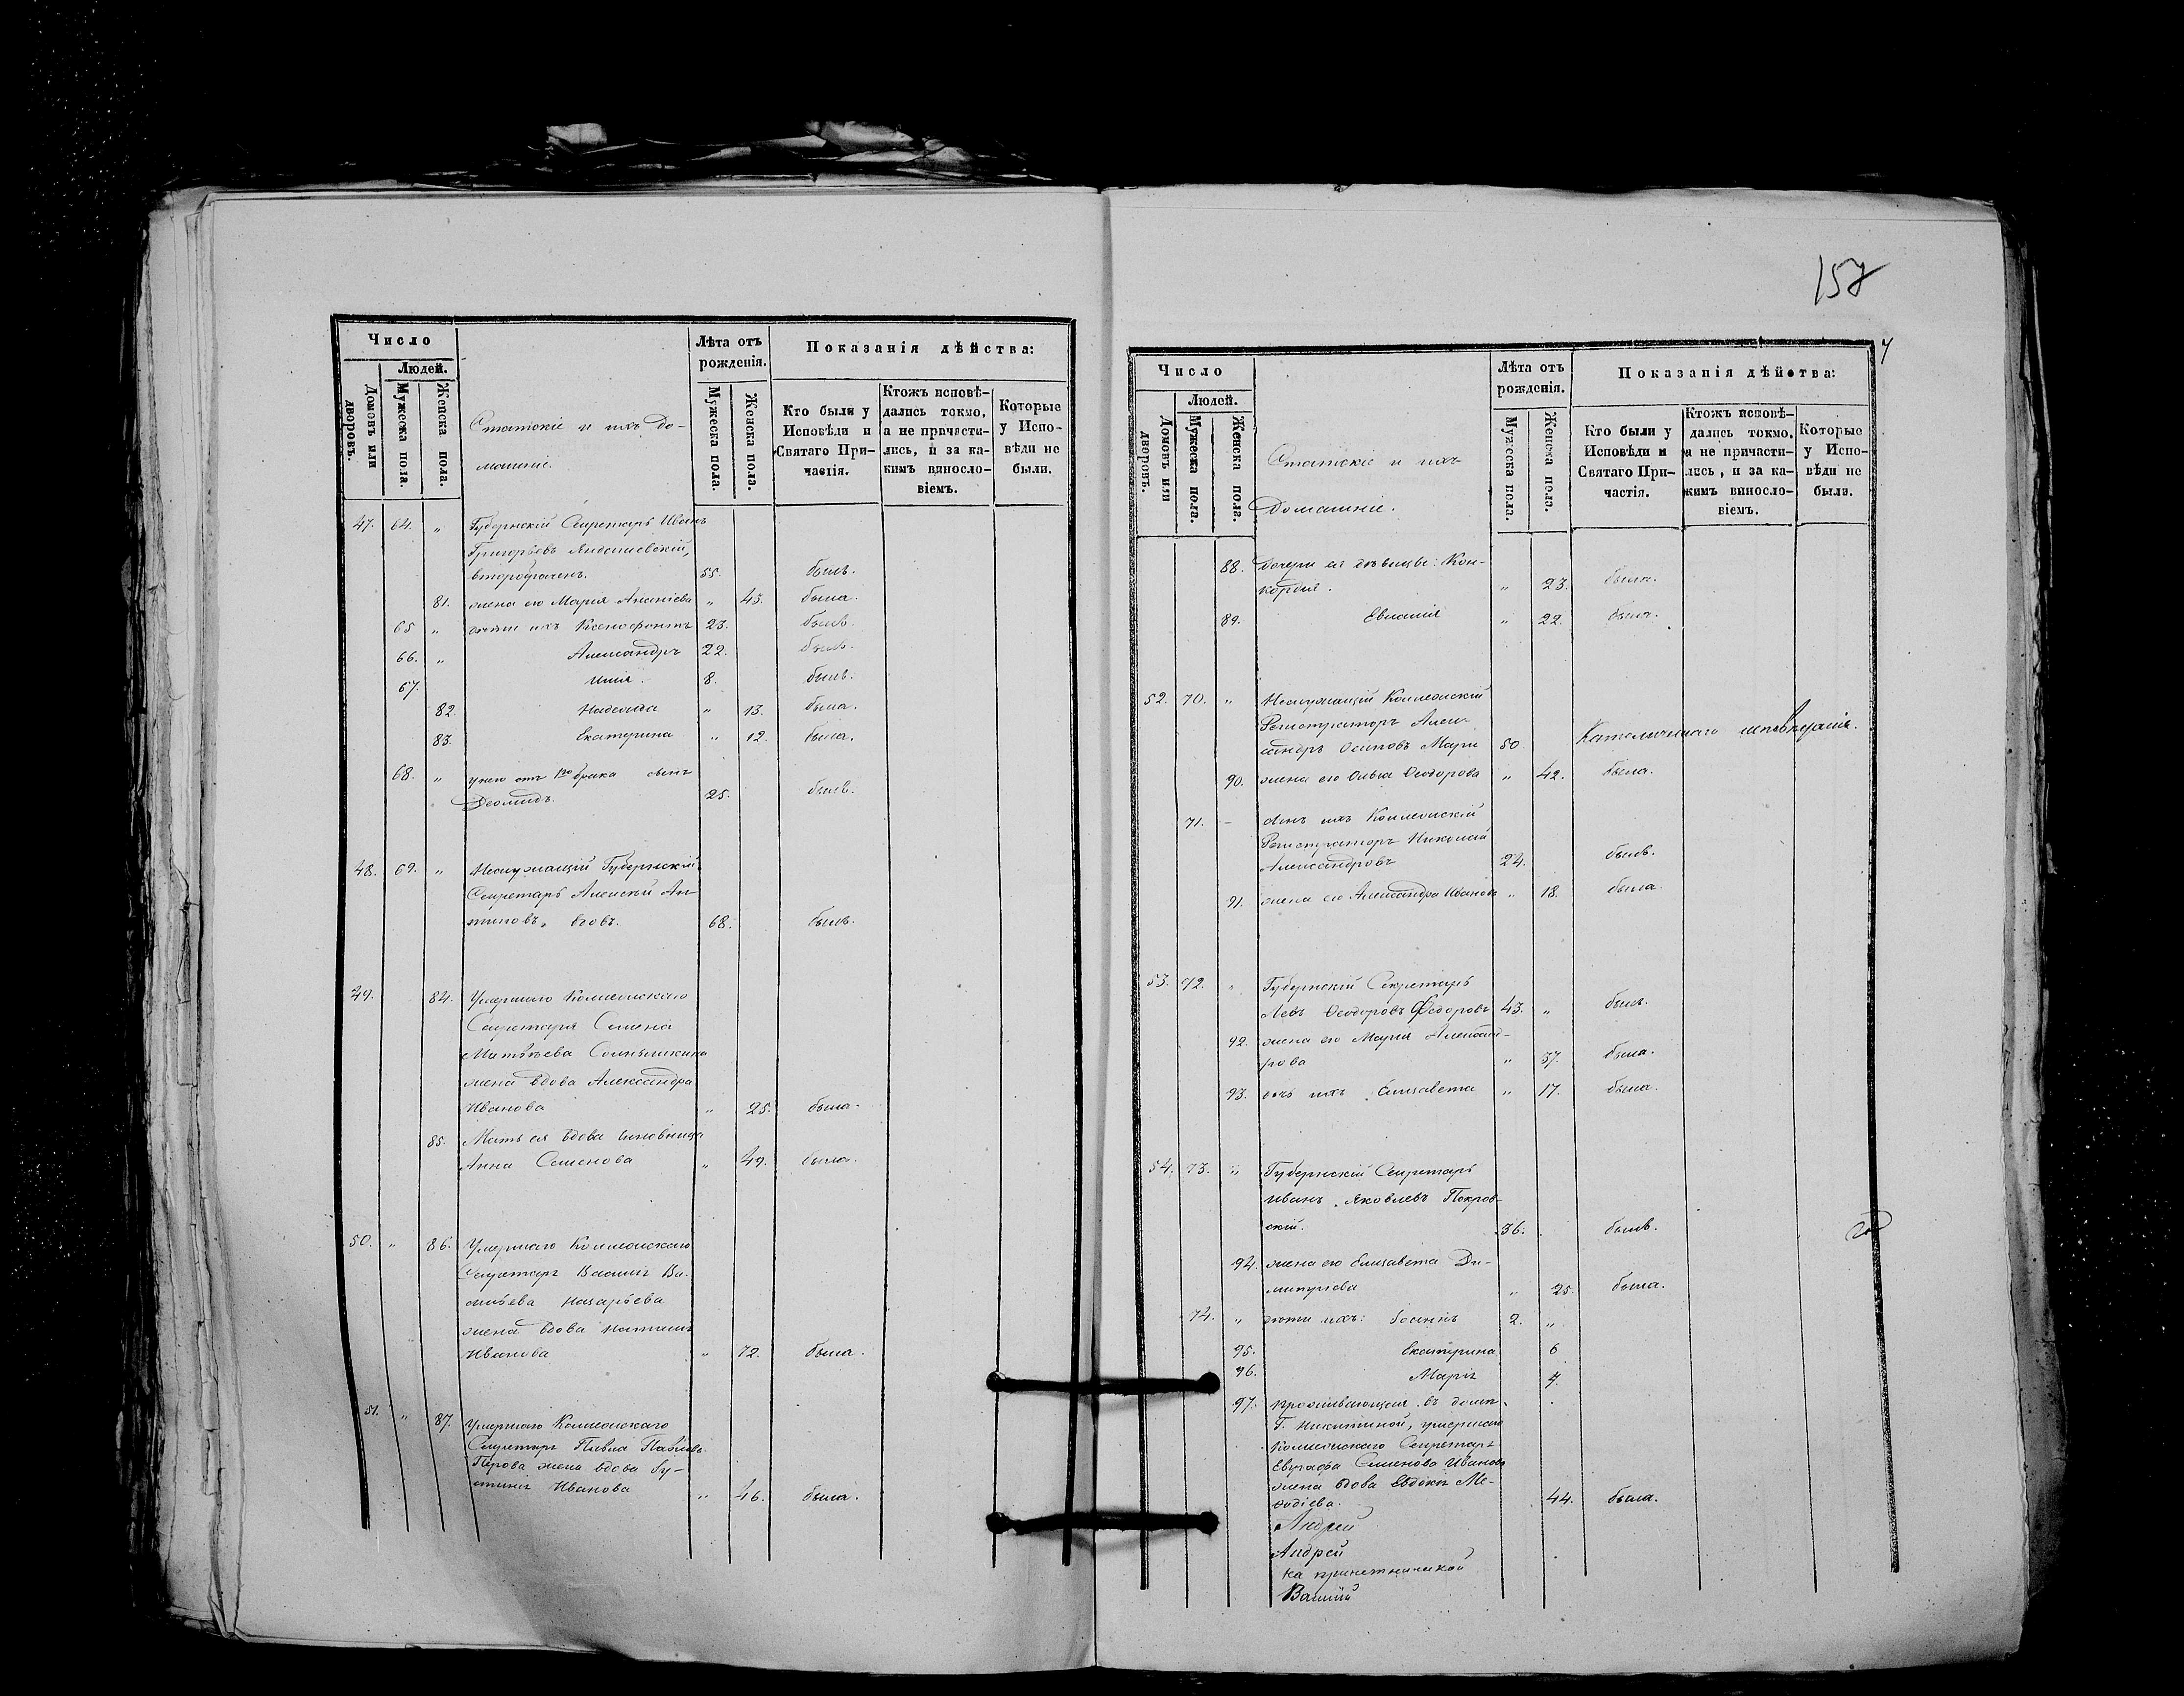 Число
Людей.
Домовъ или дворовъ.
Мужеска пола.
Женска пола.
Статскіе и ихъ До-
машніе.
Лѣта отъ
рожденія.
Мужеска пола.
Женска пола.
Показанія дѣйства:
Кто были у
Исповѣди и
Святаго При-
частія.
Ктожъ исповѣ-
дались токмо,
а не причасти-
лись, и за ка-
кимъ винословіемъ.
Которые
у Испо-
вѣди не
были.
47. 64. „ Губернскій Секретарь Иванъ
Григорьевъ
второбраченъ. 55. былъ.
81. жена его Марія Ананіева „ 43. была.
65 „ дѣти ихъ Ксенофонтъ 23. былъ.
66. „ Александръ 22. былъ.
67. Илія. 8. былъ.
82. Надежда „ 13. была.
83. Екатерина „ 12. была.
68. „ у него отъ 1го брака сынъ
Діомидъ. 25. былъ.
48. 69. „ Неслужащій Губернскій
Секретарь Алексѣй Ан-
типовъ, вдовъ. 68. былъ.
49. 84. Умершаго Коллежскаго
Секретаря Семена
Матвѣева
жена вдова Александра
Иванова „ 25. была.
85. Мать ея вдова чиновница
Анна Семенова „ 49. была.
50. „ 86. Умершаго Коллежскаго
Секретаря Василія Ва-
сильева Назарьева
жена вдова Наталія
Иванова „ 72. была.
51. „ 87. Умершаго Коллежскаго
Секретаря Павла Павлова
Перова жена вдова Іу-
стинія Иванова „ 46. была.
157
7
Число
Людей.
Домовъ или дворовъ.
Мужеска пола.
Женска пола.
Статскіе и ихъ
Домашніе.
Лѣта отъ
рожденія.
Мужеска пола.
Женска пола.
Показанія дѣйства:
Кто были у
Исповѣди и
Святаго При-
частія.
Ктожъ исповѣ-
дались токмо,
а не причасти-
лись, и за ка-
кимъ винословіемъ.
Которые
у Испо-
вѣди не
были.
88. Дочери ея дѣвицы: Кон-
кордія. „ 23. была.
89. Евлампія „ 22. была.
52. 70. „ Неслужащій Коллежскій
Регистраторъ Алек-
сандръ Осиповъ Мари 50. Католическаго исповѣданія.
90. жена его Ольга Ѳеодорова „ 42. была.
71. – сынъ ихъ Коллежскій
Регистраторъ Николай
Александровъ 24. былъ.
91. жена его Александра Иванова „ 18. была.
53. 72. „ Губернскій Секретарь
Левъ Ѳеодоровъ Федоровъ 43. „ былъ.
92. жена его Марія Александ-
рова „ 37. была.
93. дочь ихъ Елисавета „ 17. была.
54. 73. „ Губернскій Секретарь
Иванъ Яковлевъ Покров-
скій. 36. былъ.
94. жена его Елисавета Ди-
митріева „ 25. была.
74. „ дѣти ихъ: Іоаннъ 2. „
95. Екатерина 6
96. Марія 4.
97. проживающая въ домѣ
Г. Никитиной, умершаго
Коллежскаго Секретаря
Евграфа Семенова Иванова
жена вдова Евдокія Ме-
ѳодіева. 44. была.
Андрей
Андрей